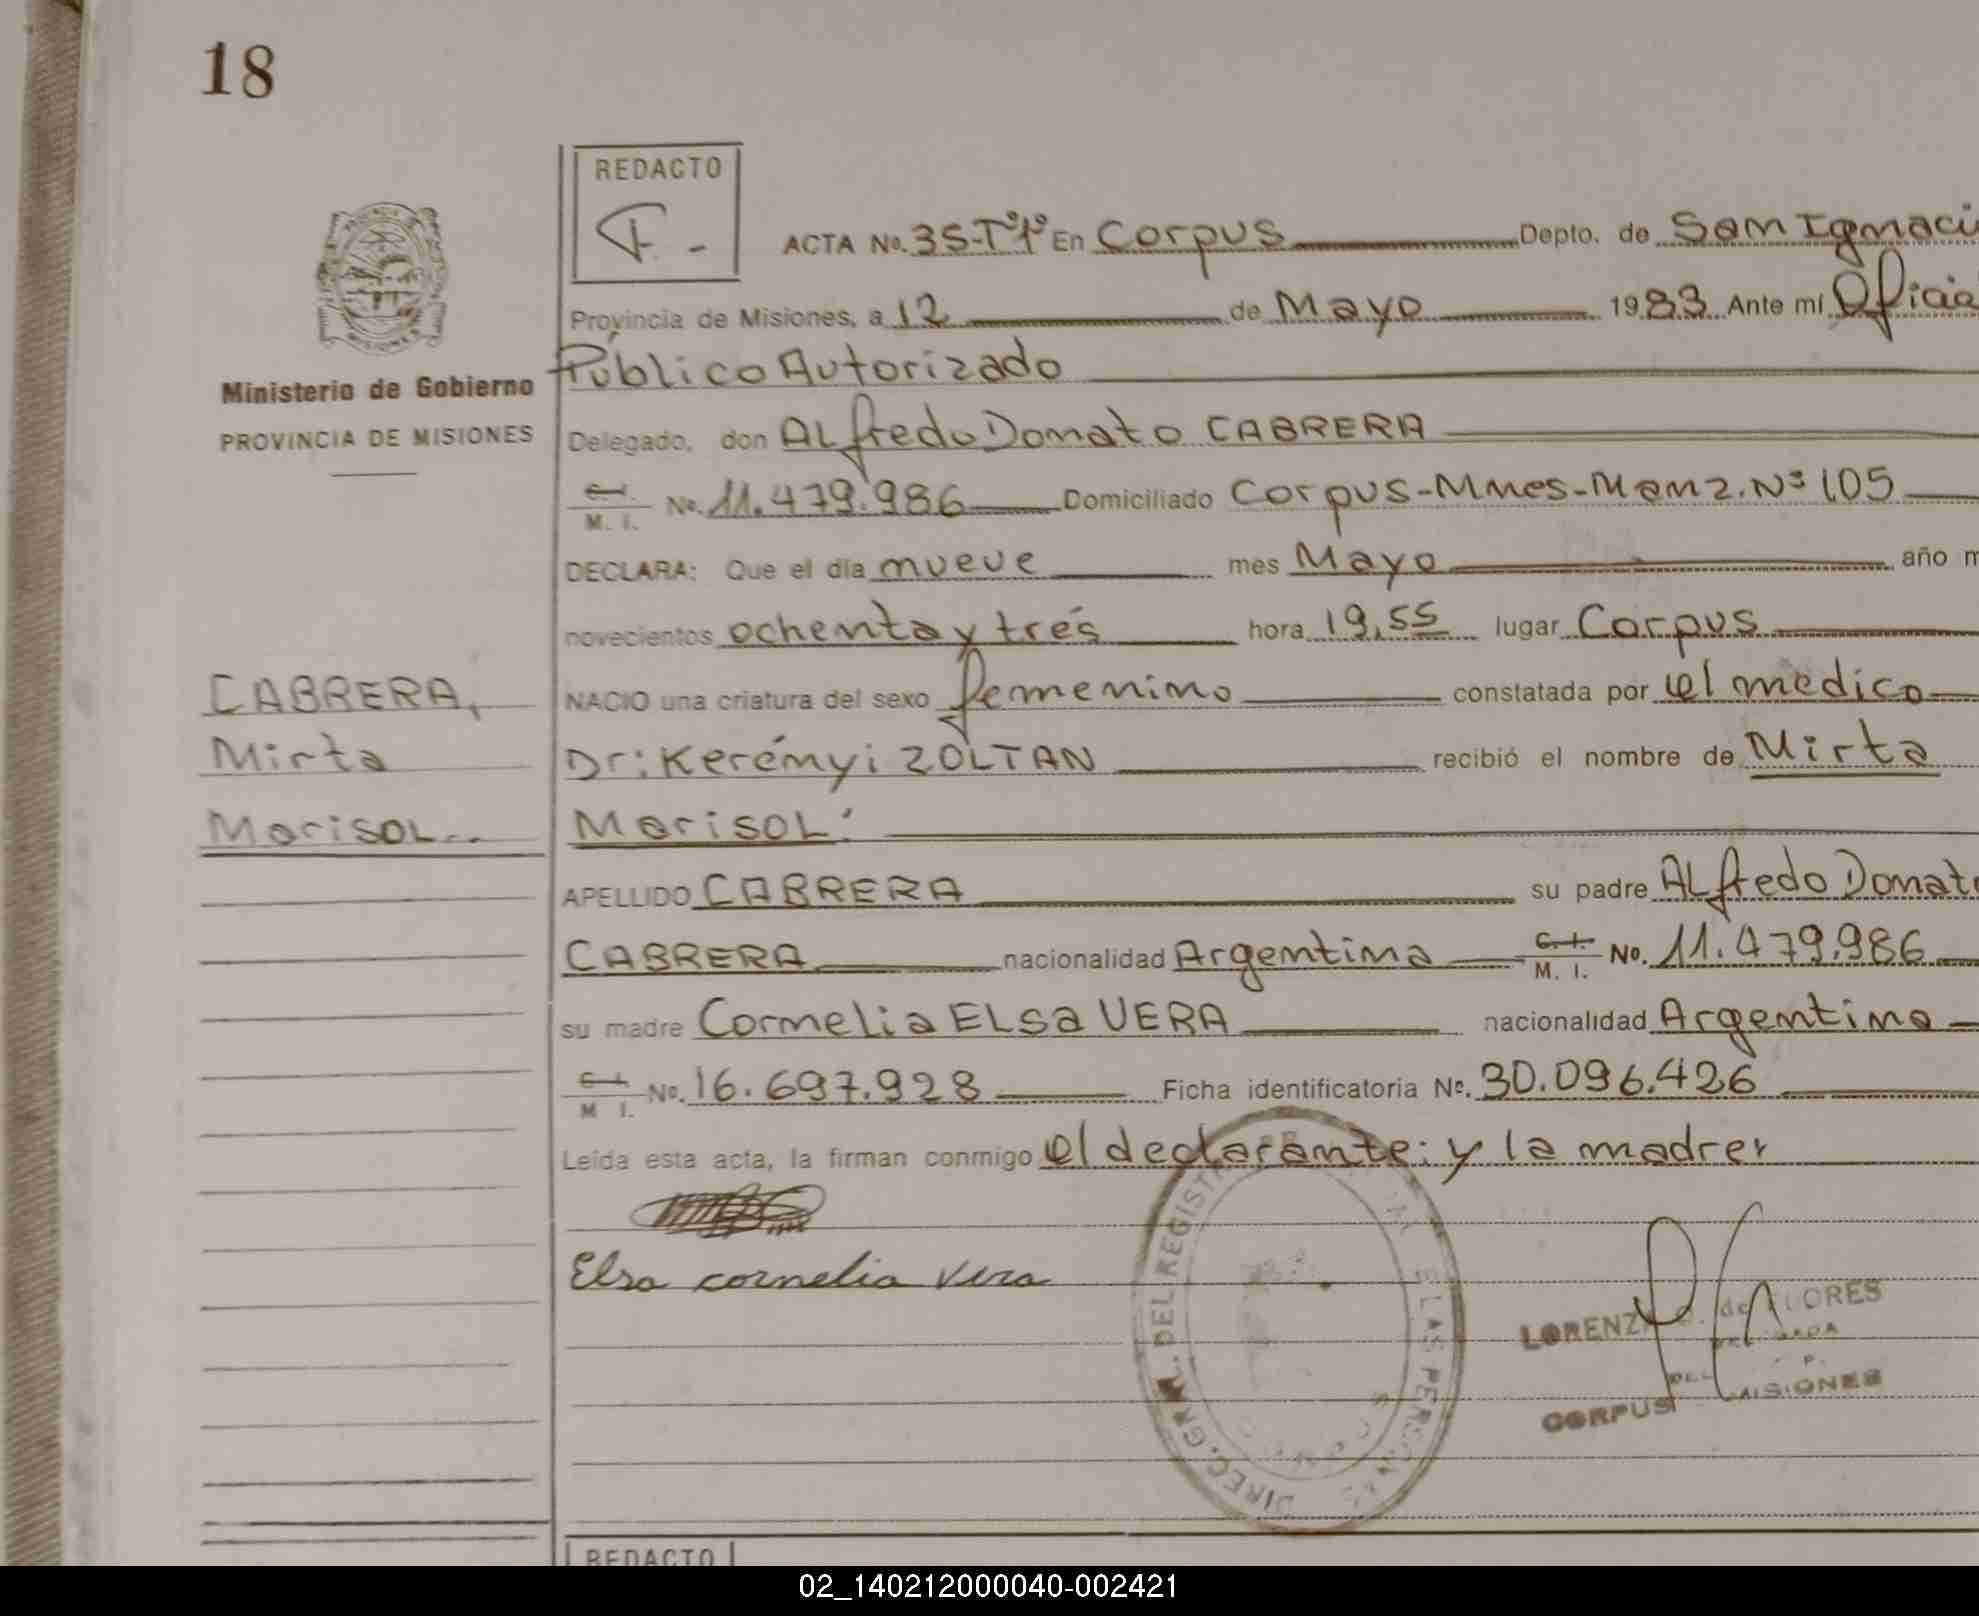 18
REDACTO
F.-
ACTA No. 35-Tº1º En Corpus Depto. de San Ignaci
Provincia de Misiones, a 12 de Mayo 1983. Ante mí Oficia
Público Autorizado
Ministerio de Gobierno
PROVINCIA DE MISIONES
Delegado, don ALfredo Donato CABRERA
C.I. M. I. No. 11.479.986 Domiciliado Corpus-Mnes-Manz. Nº 105
DECLARA: Que el día nueve mes Mayo año m
novecientos ochenta y trés hora 19,55 lugar Corpus
CABRERA,
Mirta
Marisol..
NACIO una criatura del sexo femenino constatada por el médico
Dr: Kerényi ZOLTAN recibió el nombre de Mirta
Marisol.
APELLIDO CABRERA su padre ALfredo Donato
CABRERA nacionalidad Argentina C.I. M. I. No. 11.479.986
su madre Cornelia ELsa VERA nacionalidad Argentina
C.I. M I. No. 16.697.928 Ficha identificatoria Nº. 30.096.426
Leída esta acta, la firman conmigo el declarante: y la madrer
Elsa cornelia Vera
DIREC. GRAL. DEL REGIST LAS PERSONAS
de FLORES
CORPUS MISIONES
REDACTO
02_140212000040-002421